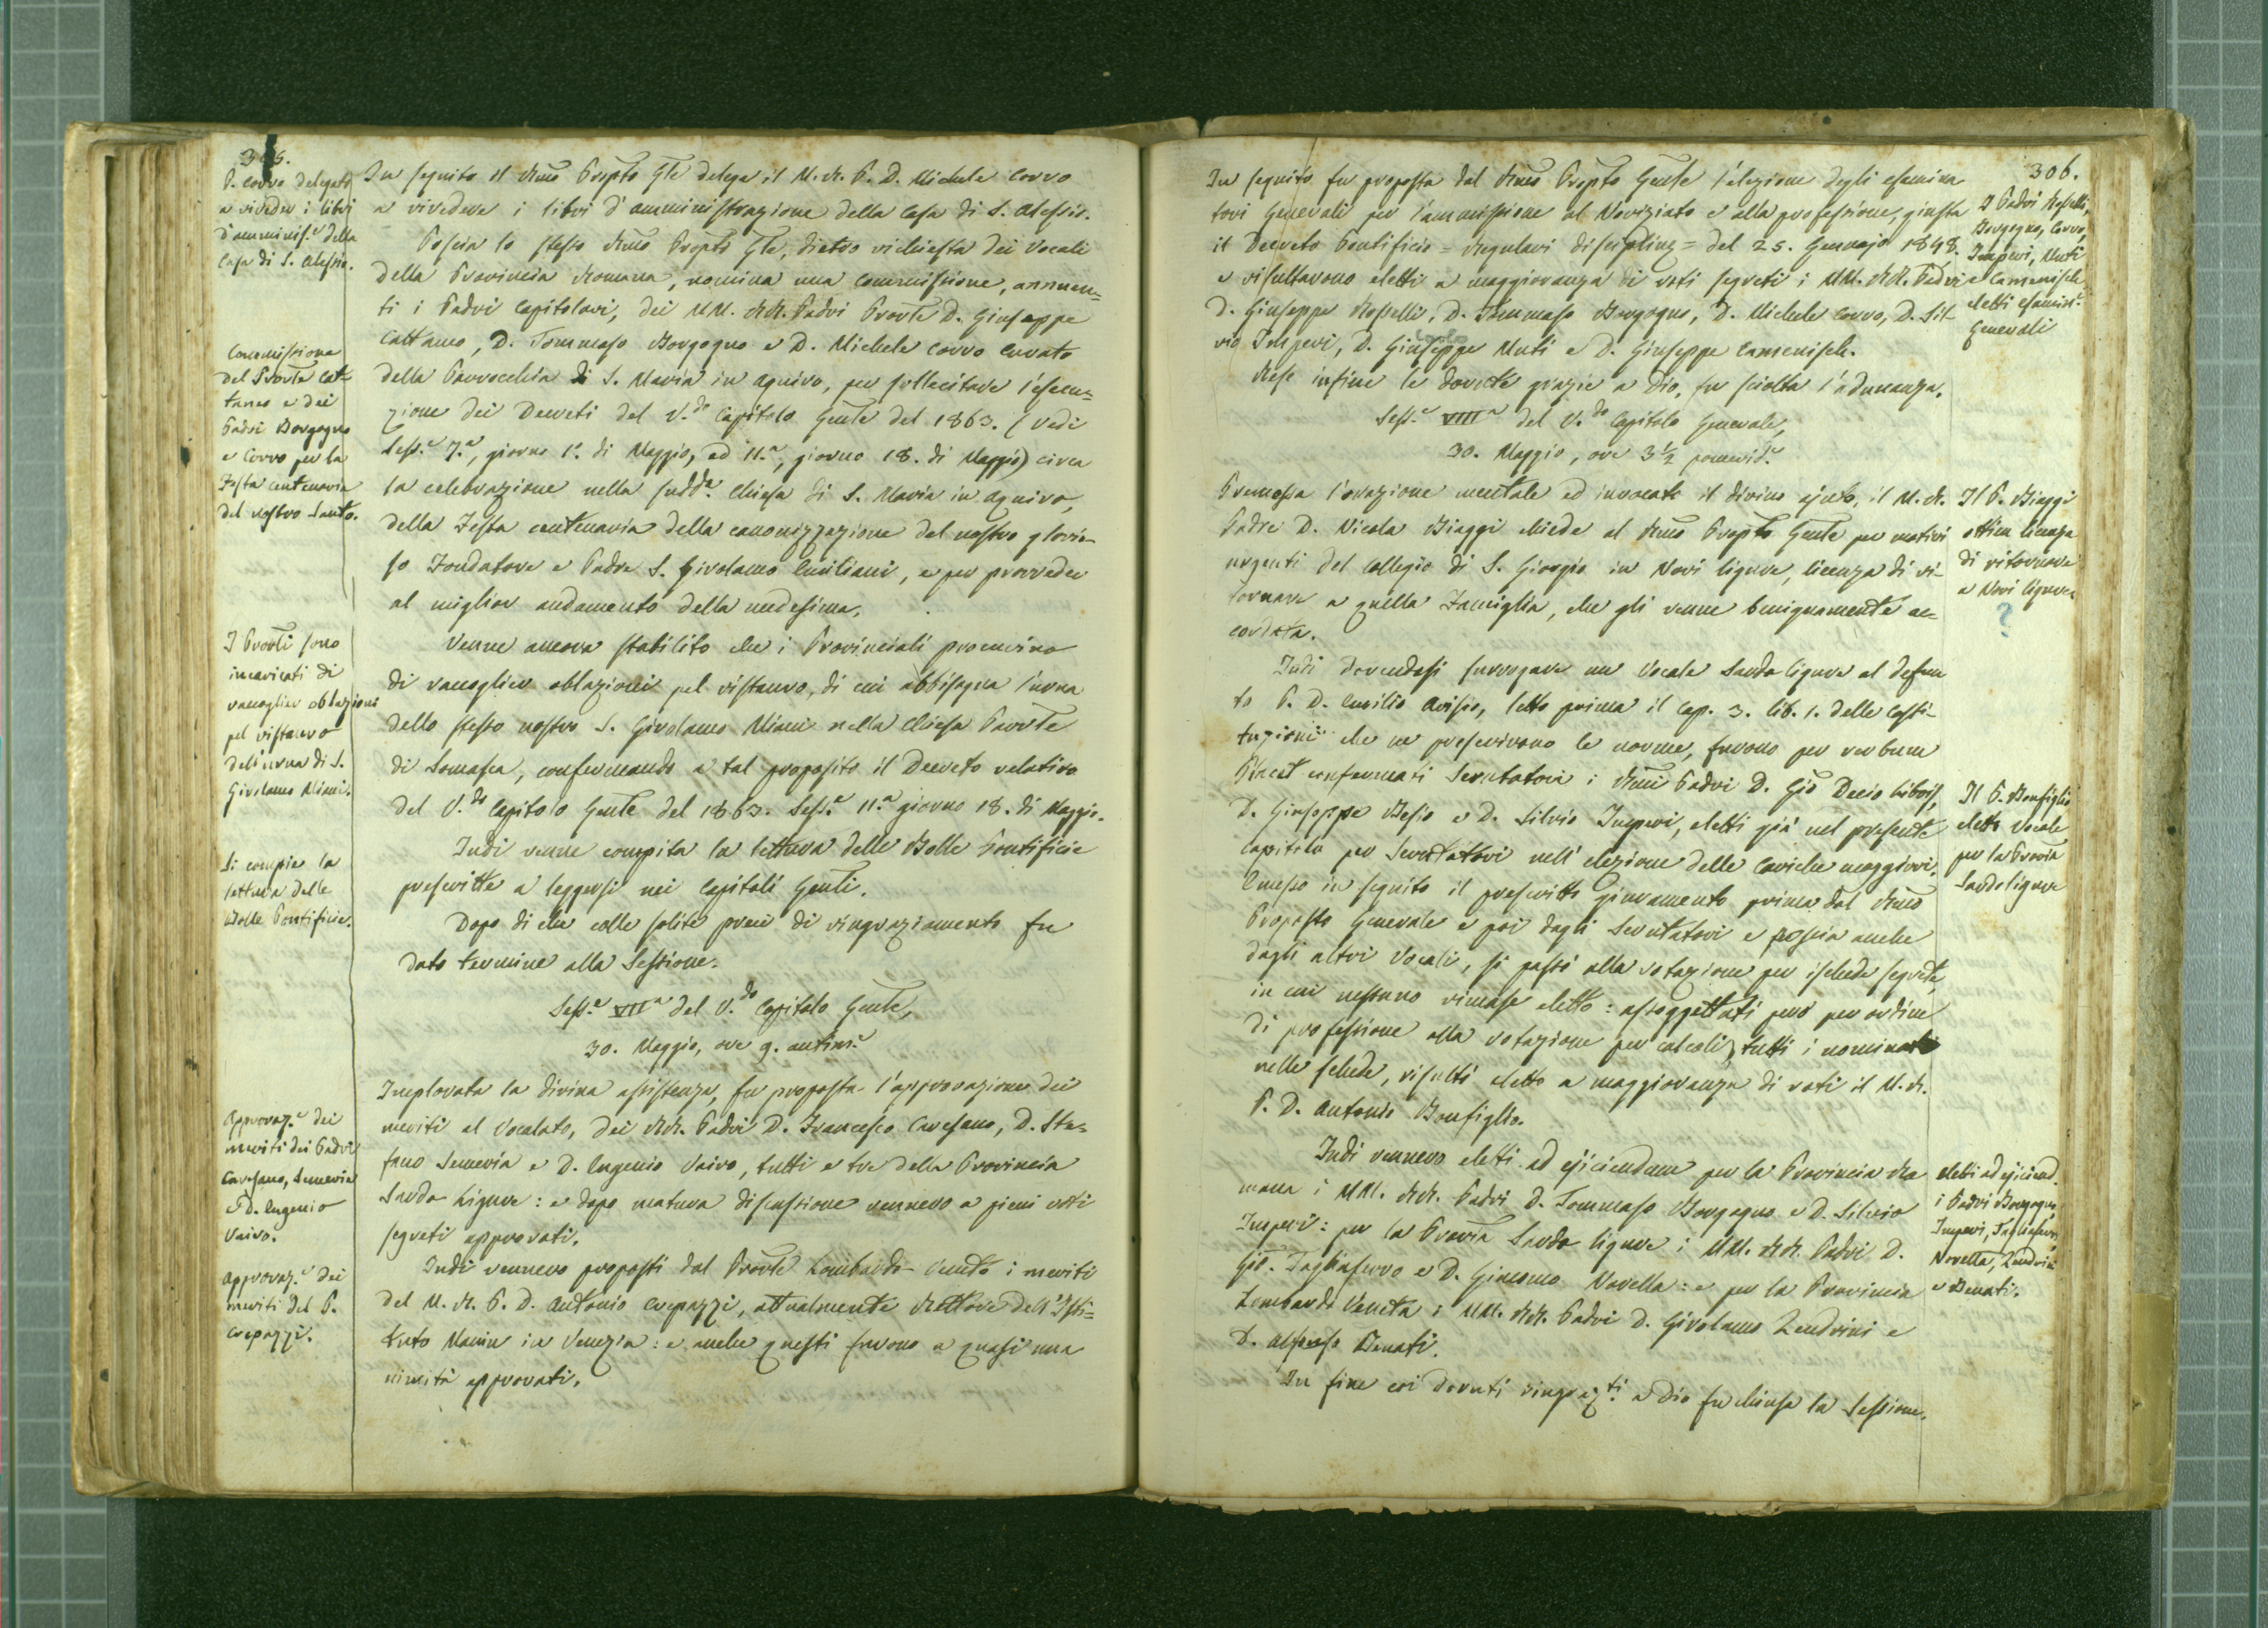 305.
P. Corvo delegato
a riveder i libri
d'amminis.e della
Casa di S. Alessio.
Commissione
del Provle Cat-
taneo e dei
Padri Borgogno
e Corvo per la
Festa centenaria
del nostro Santo.
I Provli sono
incaricati di
raccoglier oblazioni
pel ristauro
dell'urna di S.
Girolamo Miani.
Si compie la
lettura delle
Bolle Pontificie.
Approvaz.e dei
meriti dei Padri
Caresano, Semeria
e D. Eugenio
Vairo.
Approvaz.e dei
meriti del P.
Crepazzi.
In seguito il Rmo Prepto Gle delega il M. R. P. D. Michele Corvo
a rivedere i libri d'amministrazione della Casa di S. Alessio.
Poscia lo stesso Rmo Prepto Gle, dietro richiesta dei Vocali
della Provincia Romana, nomina una Commissione, annuen=
ti i Padri Capitolari, dei MM. RR. Padri Provle D. Giuseppe
Cattaneo, D. Tommaso Borgogno e D. Michele Corvo Curato
della Parrocchia di S. Maria in Aquiro, per sollecitare l'esecu=
zione dei Decreti del V.do Capitolo Genle del 1863. (vedi
Sess.e 7.a, giorno 1.o di Maggio, ed 11.a, giorno 18. di Maggio) circa
la celebrazione nella sudd.a Chiesa di S. Maria in Aquiro,
della Festa centenaria della canonizzazione del nostro glorio-
so Fondatore e Padre S. Girolamo Emiliani, e per provveder
al miglior andamento della medesima.
Venne ancora stabilito che i Provinciali procurino
di raccoglier oblazioni pel ristauro, di cui abbisogna l'urna
dello stesso nostro S. Girolamo Miani nella Chiesa Parrle
di Somasca, confermando a tal proposito il Decreto relativo
del V.do Capitolo Genle del 1863. Sess.e 11.a giorno 18. di Maggio.
Indi venne compita la lettura delle Bolle Pontificie
prescritte a leggersi nei Capitoli Genli.
Dopo di che colle solite preci di ringraziamento fu
dato termine alla Sessione.
Sess.e VII.a del V.do Capitolo Genle,
30. Maggio, ore 9. antim.e
Implorata la divina assistenza, fu proposta l'approvazione dei
meriti al Vocalato, dei RR. Padri D. Francesco Caresano, D. Ste-
fano Semeria e D. Eugenio Vairo, tutti e tre della Provincia
Sardo Ligure: e dopo matura discussione vennero a pieni voti
segreti approvati.
Indi vennero proposti dal Provle Lombardo-Veneto i meriti
del M. R. P. D. Antonio Crepazzi, attualmente Rettore dell'Isti-
tuto Manin in Venezia: e anche questi furono a quasi una
nimità approvati.
306.
In seguito fu proposta dal Rmo Prepto Genle l'elezione degli esamina
tori Generali per l'ammissione al Noviziato e alla professione, giusta
il Decreto Pontificio = Regulari disciplinæ = del 25. Gennajo 1848.
e risultarono eletti a maggioranza di voti segreti i MM. RR. Padri
D. Giuseppe Rosselli, D. Tommaso Borgogno, D. Michele Corvo, D. Sil-
vio Imperi, D. Giuseppe Muti e D. Giuseppe Camenisch.
Rese infine le dovute grazie a Dio, fu sciolta l'adunanza.
Sess.e VIII.a del V.do Capitolo Generale,
30. Maggio, ore 3 1/2 pomerid.e
Premessa l'orazione mentale ed invocato il divino ajuto, il M. R.
Padre D. Nicola Biaggi chiede al Rmo Prepto Genle per motivi
urgenti del Collegio di S. Giorgio in Novi ligure, licenza di ri-
tornare a quella Famiglia, che gli venne benignamente ac-
cordata.
Indi dovendosi surrogare un Vocale Sardo ligure al defun
to P. D. Emilio Avisio, letto prima il Cap. 3. lib. 1. delle Costi-
tuzioni che ne prescrivono le norme, furono per verbum
Placet confermati Scrutatori i Rmi Padri D. Gio Decio Libois,
D. Giuseppe Besio e D. Silvio Imperi, eletti già nel presente
Capitolo per Scrutatori nell'elezione delle cariche maggiori.
Emesso in seguito il prescritto giuramento prima dal Rmo
Preposto Generale e poi dagli Scrutatori e poscia anche
dagli altri Vocali, si passò alla votazione per ischede segrete,
in cui nessuno rimase eletto: assoggettati però per ordine
di professione alla votazione per calcoli, tutti i nominati
nelle schede, risultò eletto a maggioranza di voti il M. R.
P. D. Antonio Bonfiglio.
Indi vennero eletti ad ejiciendum per la Provincia Ro
mana i MM. RR. Padri D. Tommaso Borgogno e D. Silvio
Imperi: per la Provia Sardo ligure i MM. RR. Padri D.
Gio. Tagliaferro e D. Giacomo Novella: e per la Provincia
Lombardo Veneta i MM. RR. Padri D. Girolamo Zendrini e
D. Alfonso Benati.
In fine coi dovuti ringraz.ti a Dio fu chiusa la Sessione.
I Padri Rosselli,
Borgogno, Corvo,
Imperi, Muti
e Camenisch
eletti esamin.i
Generali
Il P. Biaggi
ottien licenza
di ritornare
a Novi ligure
?
Il P. Bonfiglio
eletto Vocale
per la Provia
Sardoligure
eletti ad ejiciend.
i Padri Borgogno,
Imperi, Tagliaferro,
Novella, Zendrini
e Benati.